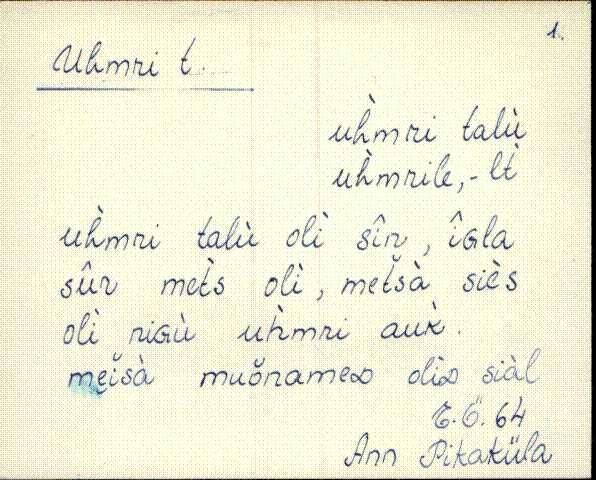 1.
Uhmri t.
uh̀mri talù
uh̀mrile, - lt̀
uh̀mri talù olì sîr, îɢla
sûr met̀s olì, met̆sà siès
olì riɢù uh̀mri auk̀.
mĕt̆sà muŏnameᴅ olìᴅ siàl
E. Ö. 64
Ann Pikaküla